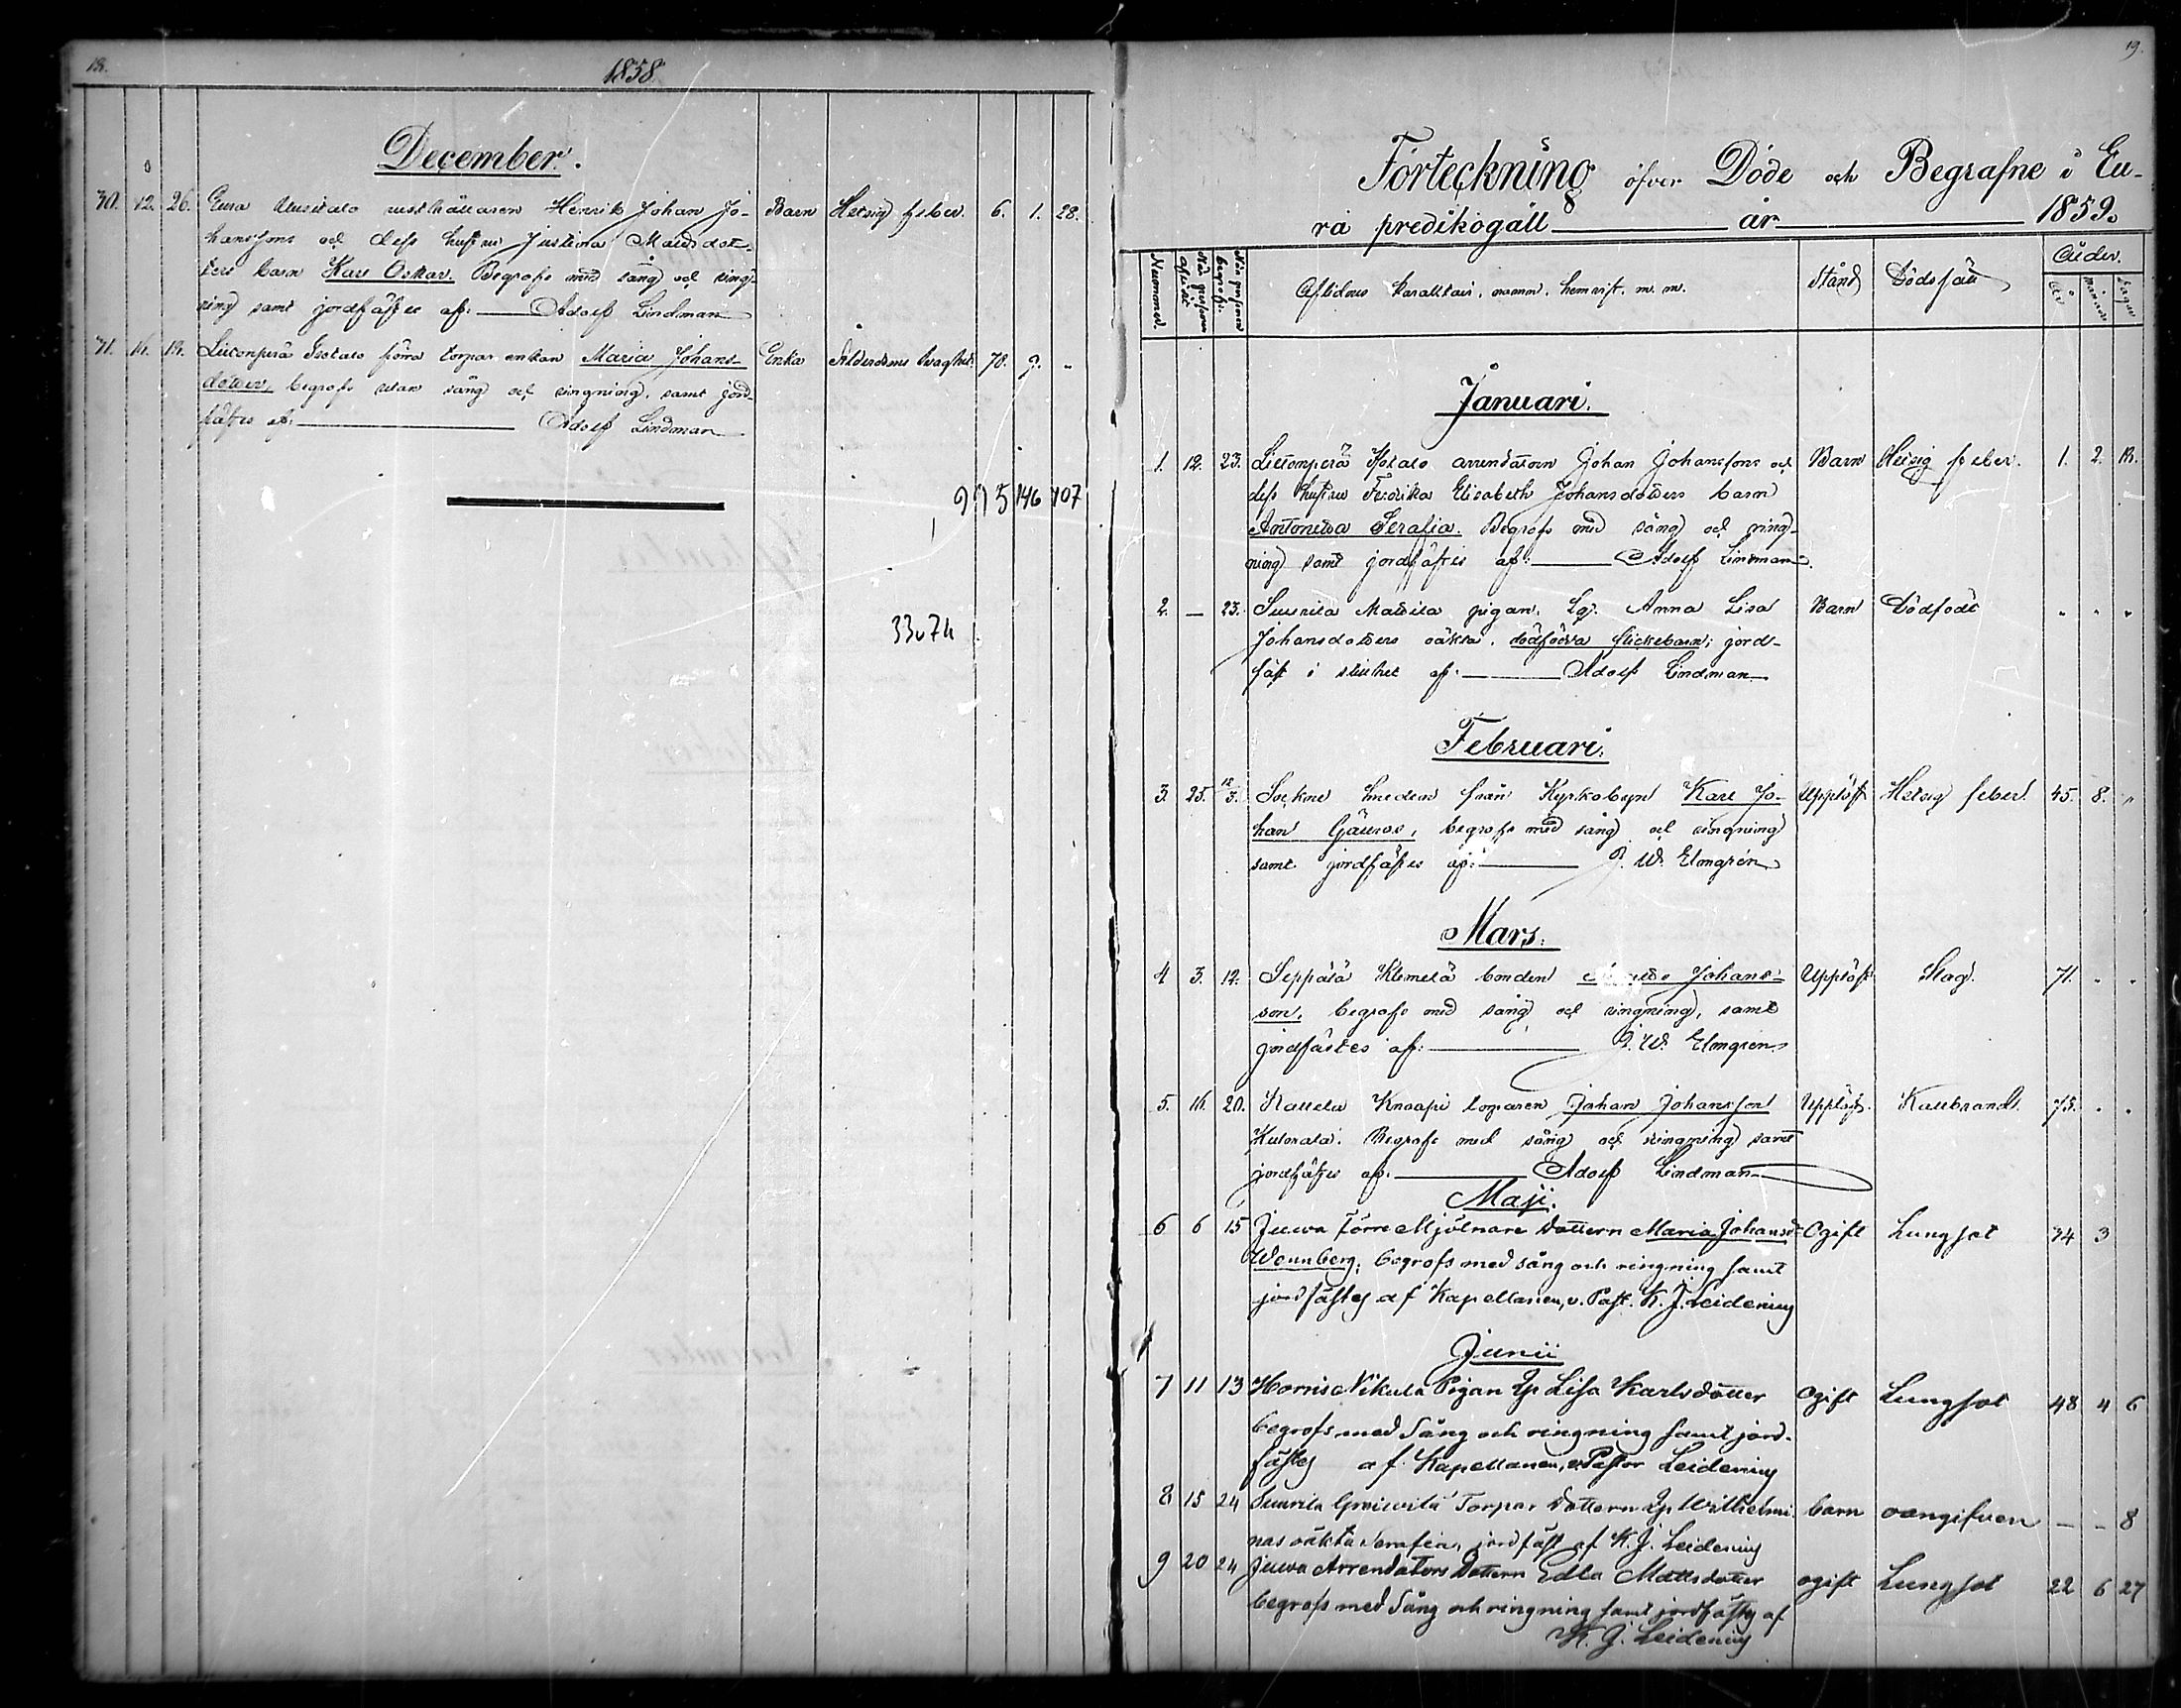 18.
1858.
December.
70. 12. 26. Eura Uusitalo rusthållaren Henrik Johan Jo- Barn Hetsig feber. 6. 1. 28.
hanssons och dess hustru Justina Matsdot-
ters barn Karl Oskar. Begrofs med sång och ring-
ning samt jordfästes af: Adolf Lindman
71. 16. 19. förra torpar enkan Maria Johans- Enka Ålderdoms svaghet. 78. 9. -
dotter, begrofs utan sång och ringning, samt jord-
fästes af: Adolf Lindman
995 146 107
33074
19.
Förteckning öfver Döde och Begrafne i Eu-
ra predikogäll år 1859.
Nummer. När personen aflidit När personen begrofs. Aflidnes karakteir, namn, hemvist. m. m. Stånd Dödssätt Ålder.
År Månader Dagar
Januari.
1. 12. 23. arrendatorn Johan Johanssons och Barn Hetsig feber. 1. 2. 18.
dess hustru Fredrika Elisabeth Johansdotters barn
Antonetta Serafia. Begrofs med sång och ring-
ning samt jordfästes af: Adolf Lindman.
2. — 23. Suurila Mattila pigan Lg. Anna Lisa Barn Dödfödt - - -
Johansdotters oäkta, dödfödda flickebarn; jord-
fäst i stillhet af: Adolf Lindman
Februari.
3. 25. 12/3. Sockne smeden från Kyrkobyn Karl Jo- Upplöst Hetsig feber. 45. 8. "
han begrofs med sång och ringning
samt jordfästes af: W. Elmgren
Mars.
4 3. 12. Seppälä Klemelä bonden Johans- Upplöst Slag. 71. - -
son, begrofs med sång och ringning, samt
jordfästes af: W. Elmgren
5. 16. 20. Kauttu Knaapi torparen Johan Johansson Upplöst. Kallbrand. 75. - -
Begrofs med sång och ringning samt
jordfästes af: Adolf Lindman
Maji.
6 6 15 Juwa förre Mjölnare Dottern Maria Johansd. Ogift Lungsot 34 3
Wennberg, begrofs med sång och ringning samt
jordfästes af Kapellanen, v. Past. K. J. Leidenius
Junii
7 11 13 Nikula Pigan Lg. Lisa Karlsdotter Ogift Lungsot 48 4 6
begrofs med Sång och ringning samt jord-
fästes af Kapellanen, v. Pastor Leidenius
8 15 24 Suurila Torpar Dottern Lg. Wilhelmi- barn oangifven — — 8
nas oäkta Serafia, jordfäst af K. J. Leidenius
9 20 24 Juwa Arrendators Dottern Edla Mattsdotter ogift Lungsot 22 6 27
begrofs med Sång och ringning samt jordfästes af
K. J. Leidenius